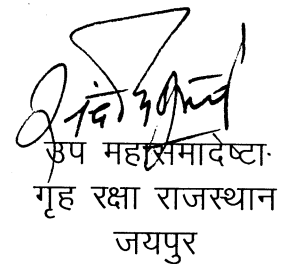 उप महासमादेष्टा
गृह रक्षा राजस्थान
जयपुर